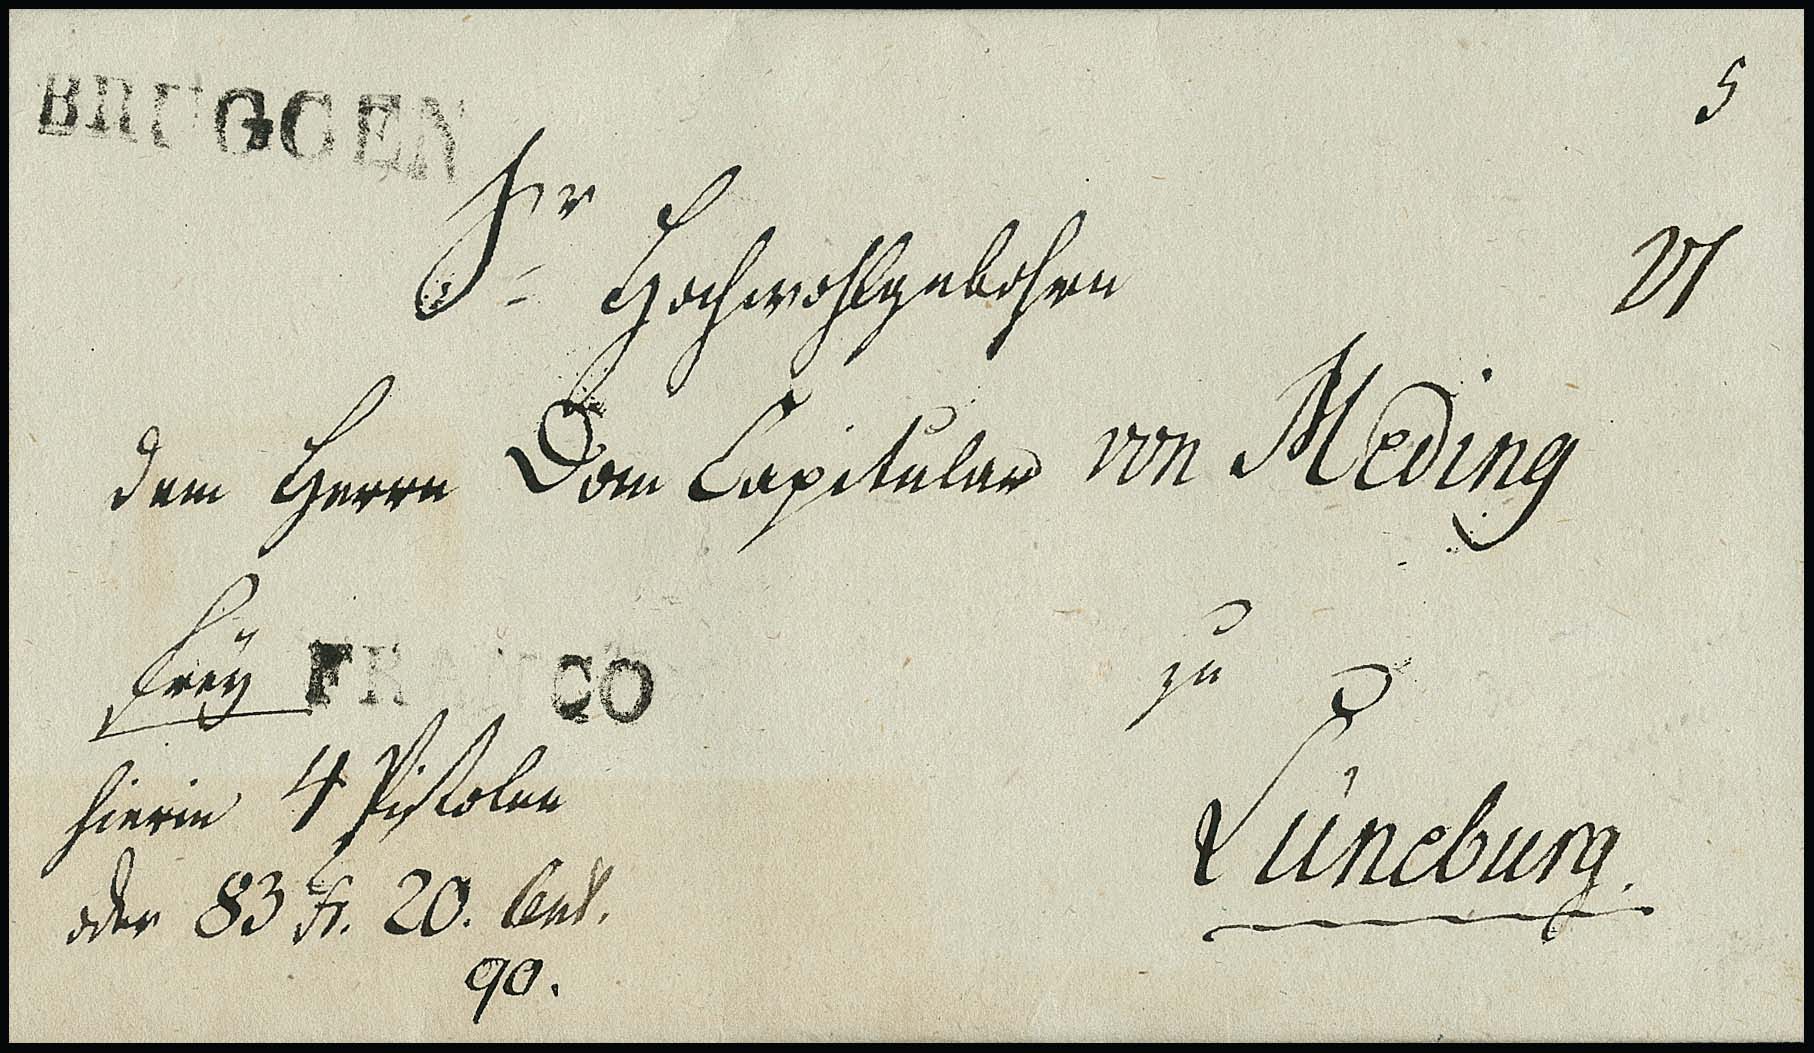 BRUGGEN
5
Sr Hochwohlgebohren
VI
dem Herrn Dom Capitular von Meding
frey FRANCO
zu
hierin 4 Pistolen
Lüneburg.
oder 83 Fr. 20. Cent.
90.